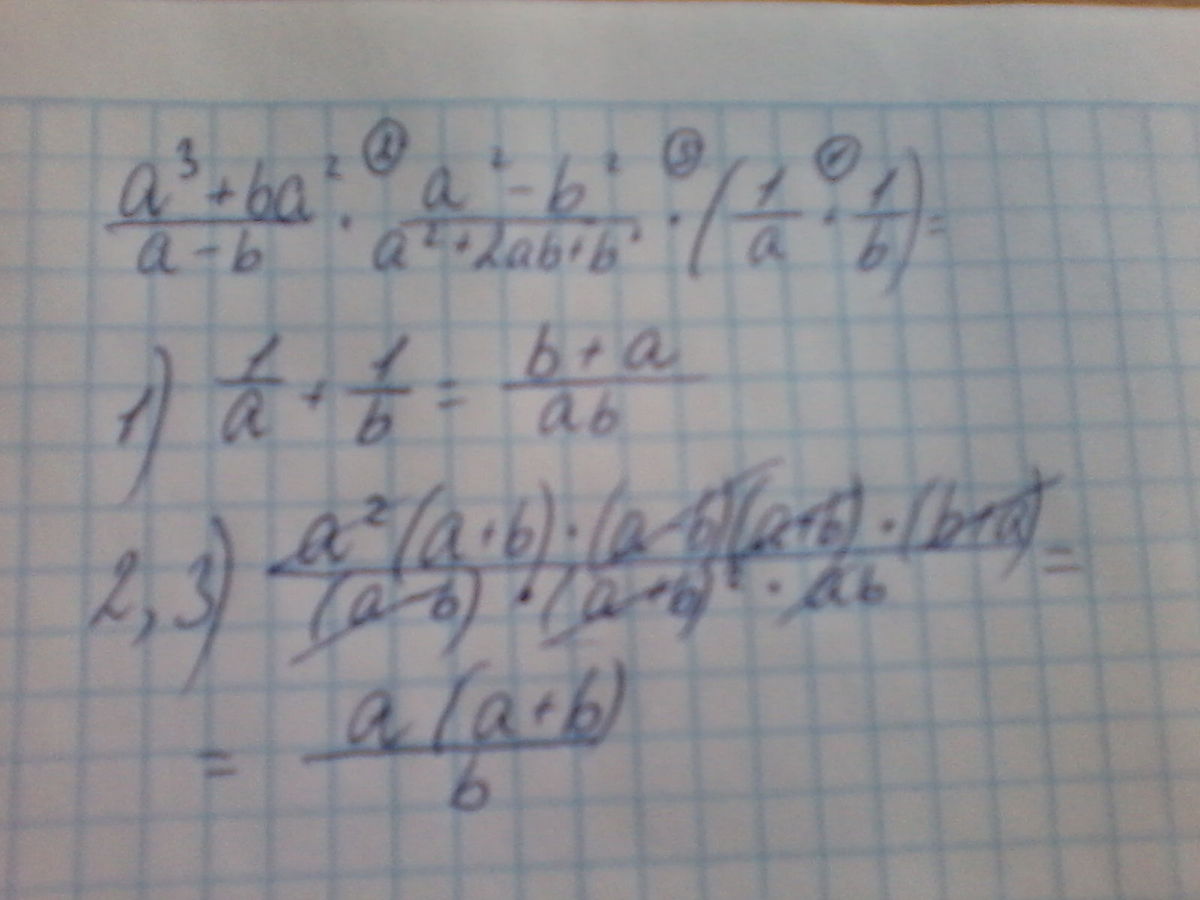 a³ + ba² / a - b · a² - b² / a² + 2ab + b² · (1/a + 1/b) =
1) 1/a + 1/b = b + a / ab
2, 3) a²(a + b) · (a - b)(a + b) · (b + a) / (a - b) · (a + b)² · ab =
= a(a + b) / b